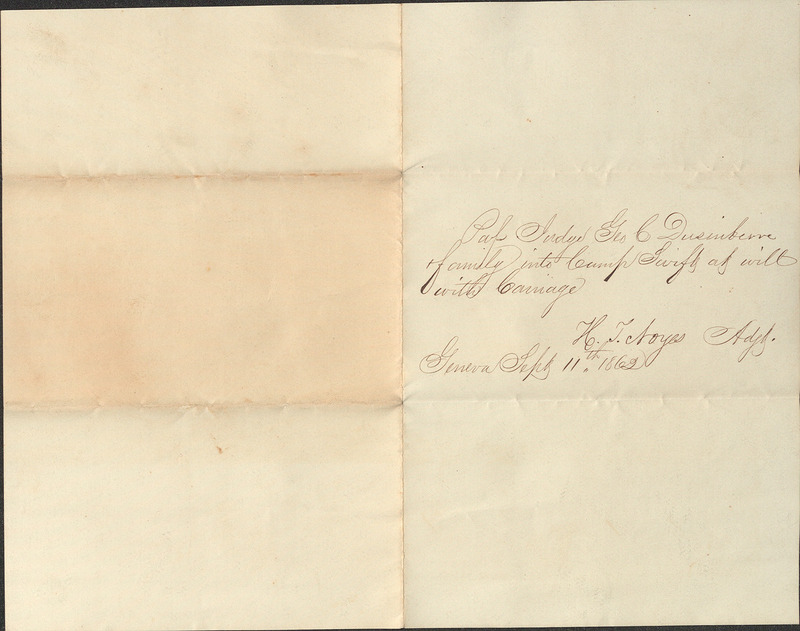 Pass Judge Geo C Dusinberre
& family into Camp Swift at will
with Carriage
H. T. Noyes Adjt.
Geneva Sept 11th. 1862